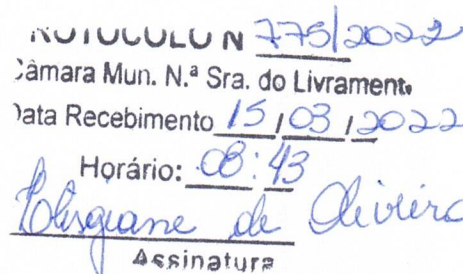 ROTOCOLO N 775/2022
Câmara Mun. N.ª Sra. do Livrament.
Data Recebimento 15/03/2022
Horário: 08:43
de Oliveira
Assinatura